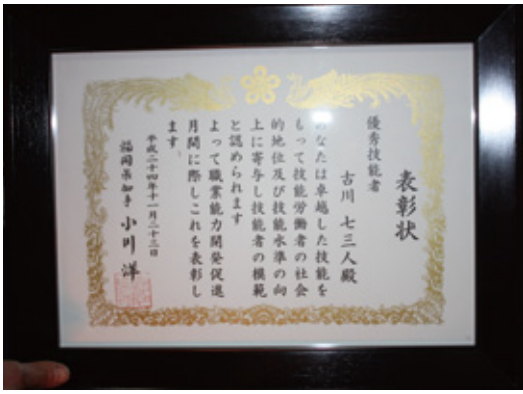 表彰状
優秀技能者
古川 七三人殿
あなたは卓越した技能を
もって技能労働者の社会
的地位及び技能水準の向
上に寄与し技能者の模範
と認められます
よって職業能力開発促進
月間に際しこれを表彰し
ます
平成二十四年十一月二十三日
福岡県知事 小川 洋